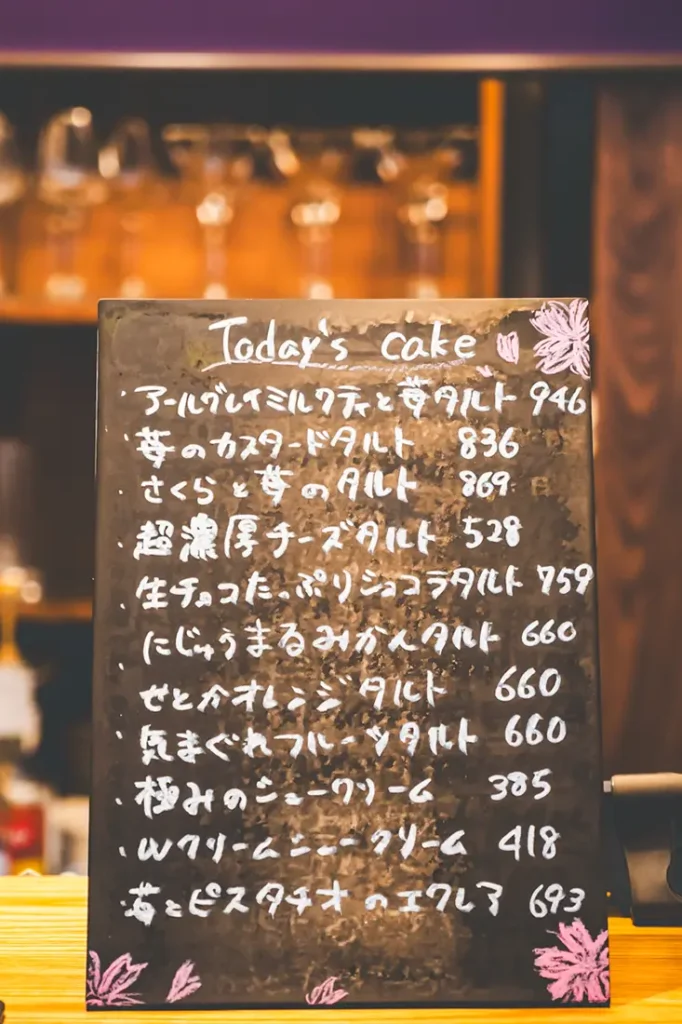 Today's cake
・アールグレイミルクティと苺タルト 946
・苺のカスタードタルト 836
・さくらと苺のタルト 869
・超濃厚チーズタルト 528
・生チョコたっぷりショコラタルト 759
・にじゅうまるみかんタルト 660
・せとかオレンジタルト 660
・気まぐれフルーツタルト 660
・極みのシュークリーム 385
・Wクリームシュークリーム 418
・苺とピスタチオのエクレア 693